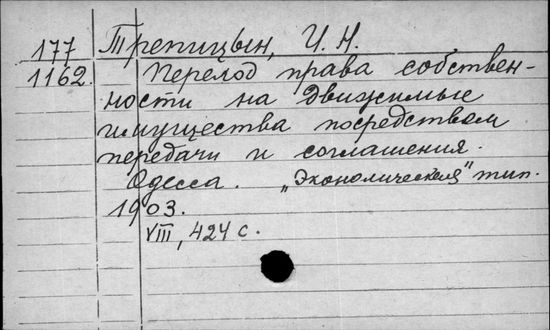 177 Трепицын, И. Н.
1162. Переход права собствен-
ности на движимые
имущества посредством
передачи и соглашения.
Одесса. „Экономическая" тип.
1903.
VIII, 424 с.